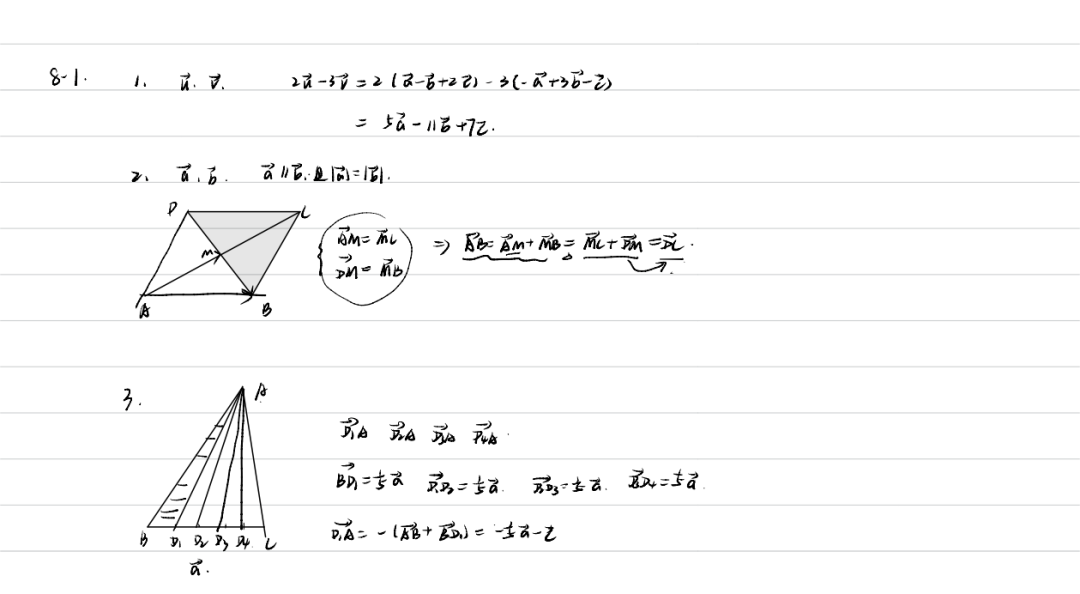 8-1. 1. u⃗. v⃗. 2u⃗-3v⃗ = 2(a⃗-b⃗+2c⃗) - 3(-a⃗+3b⃗-c⃗)
= 5a⃗-11b⃗+7c⃗.
2. a⃗, b⃗. a⃗∥b⃗. 且|a⃗|=|b⃗|.
D C
M
A B
{ AM⃗ = MC⃗
DM⃗ = MB⃗
⇒ AB⃗ = AM⃗+MB⃗ = MC⃗+DM⃗ = DC⃗.
3.
A
B D₁ D₂ D₃ D₄ C
a⃗.
D₁A⃗ D₂A⃗ D₃A⃗ D₄A⃗.
BD₁⃗ = 1/5 a⃗ D₁D₂⃗ = 1/5 a⃗. D₂D₃⃗ = 1/5 a⃗. D₃D₄⃗ = 1/5 a⃗.
D₁A⃗ = -(AB⃗+BD₁⃗) = -1/5 a⃗-c⃗